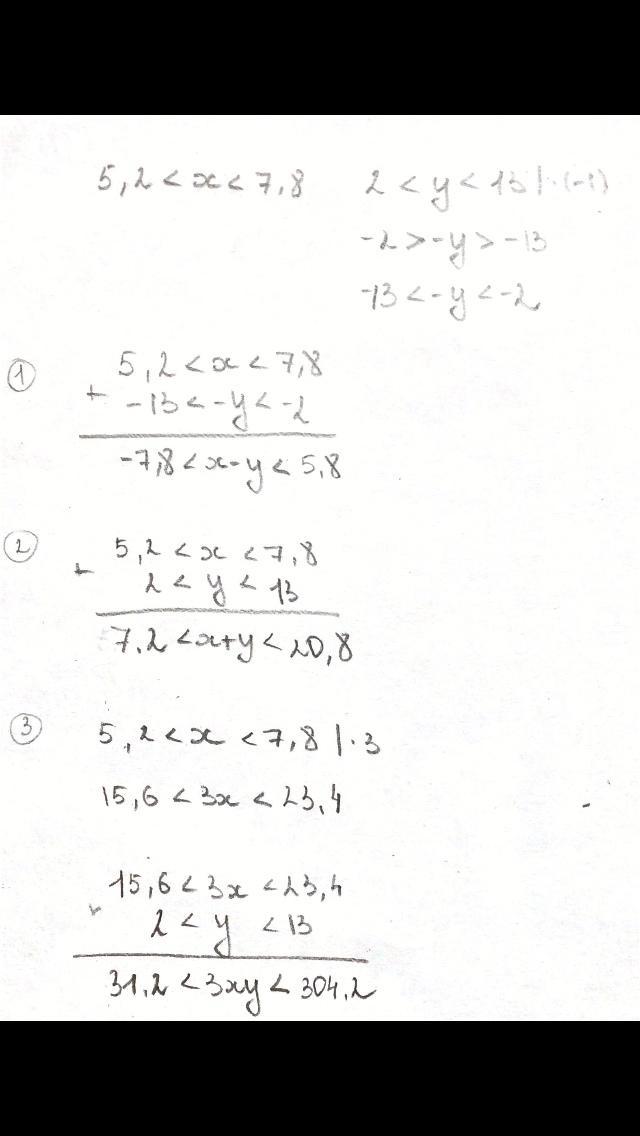 5,2 < x < 7,8 2 < y < 13 | ·(-1)
-2 > -y > -13
-13 < -y < -2
① 5,2 < x < 7,8
+ -13 < -y < -2
-7,8 < x-y < 5,8
② 5,2 < x < 7,8
+ 2 < y < 13
7,2 < x+y < 20,8
③ 5,2 < x < 7,8 | ·3
15,6 < 3x < 23,4
15,6 < 3x < 23,4
× 2 < y < 13
31,2 < 3xy < 304,2